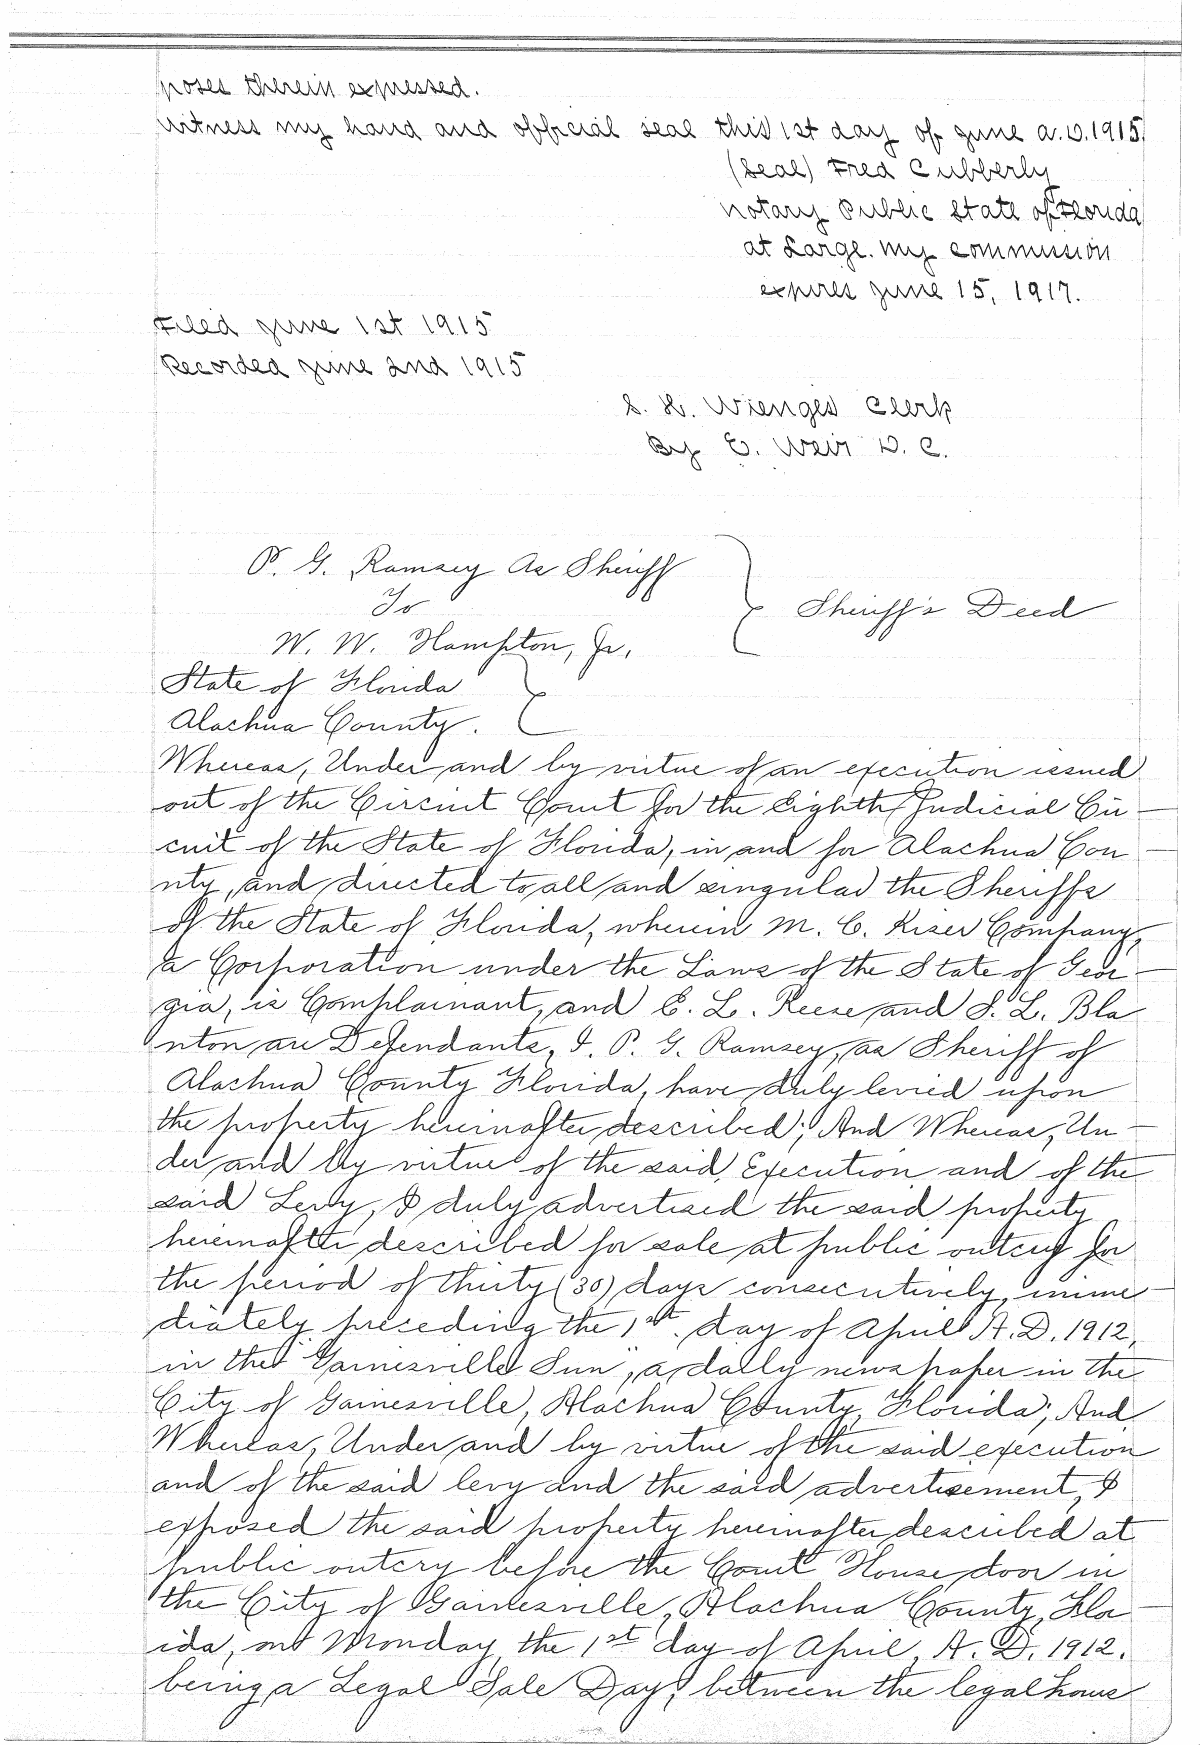 poses therein expressed.
Witness my hand and official seal this 1st day of June A.D. 1915.
(Seal) Fred Cubberly
Notary Public State of Florida
at Large. My commission
expires June 15, 1917.
Filed June 1st 1915
Recorded June 2nd 1915
S. H. Wienges Clerk
By E. Weir D. C.
P. G. Ramsey As Sheriff
To
W. W. Hampton, Jr,
Sheriff's Deed
State of Florida
Alachua County.
Whereas, Under and by virtue of an execution issued
out of the Circuit Court for the Eighth Judicial Cir-
cuit of the State of Florida, in and for Alachua Cou-
nty, and directed to all and singular the Sheriffs
of the State of Florida, wherein M. C. Kiser Company,
a Corporation under the Laws of the State of Geor-
gia, is Complainant, and E. L. Reese and S. L. Bla
nton are Defendants, I, P. G. Ramsey, as Sheriff of
Alachua County Florida, have duly levied upon
the property hereinafter described; And Whereas, Un-
der and by virtue of the said Execution and of the
said Levy, I duly advertised the said property
hereinafter described for sale at public outcry for
the period of thirty (30) days consecutively, imme-
diately preceding the 1st. day of April A.D. 1912,
in the "Gainesville Sun", a daily newspaper in the
City of Gainesville, Alachua County, Florida; And
Whereas, Under and by virtue of the said execution
and of the said levy and the said advertisement, I
exposed the said property hereinafter described at
public outcry before the Court House door in
the City of Gainesville, Alachua County, Flor-
ida, on Monday, the 1st day of April, A. D. 1912.
being a Legal Sale Day, between the legal hours